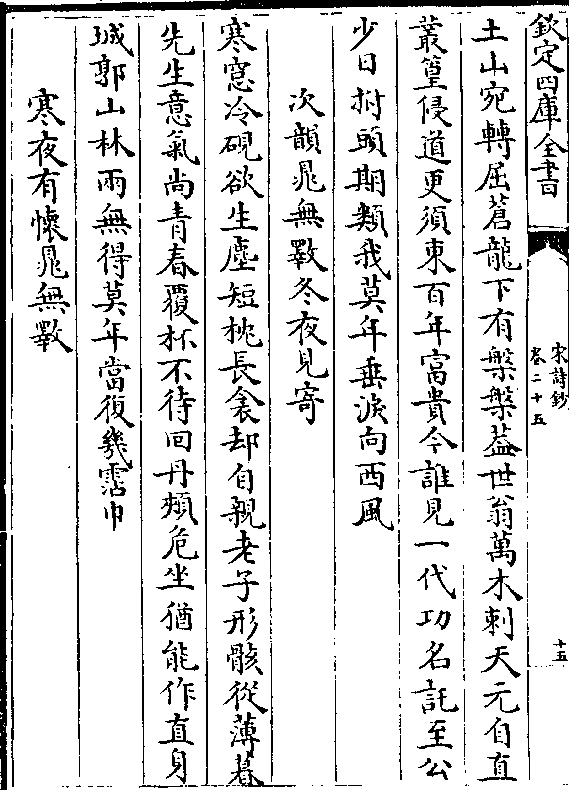 欽定四庫全書
宋詩鈔
卷二十五
十五
土山宛轉屈蒼龍下有槃槃葢世翁萬木刺天元自直
叢篁侵道更須東百年富貴今誰見一代功名託至公
少日拊頭期類我莫年垂淚向西風
次韻晁無斁冬夜見寄
寒窓冷硯欲生塵短枕長衾却自親老子形骸從薄暮
先生意氣尚青春覆杯不待回丹頰危坐猶能作直身
城郭山林兩無得莫年當復幾霑巾
寒夜有懷晁無斁